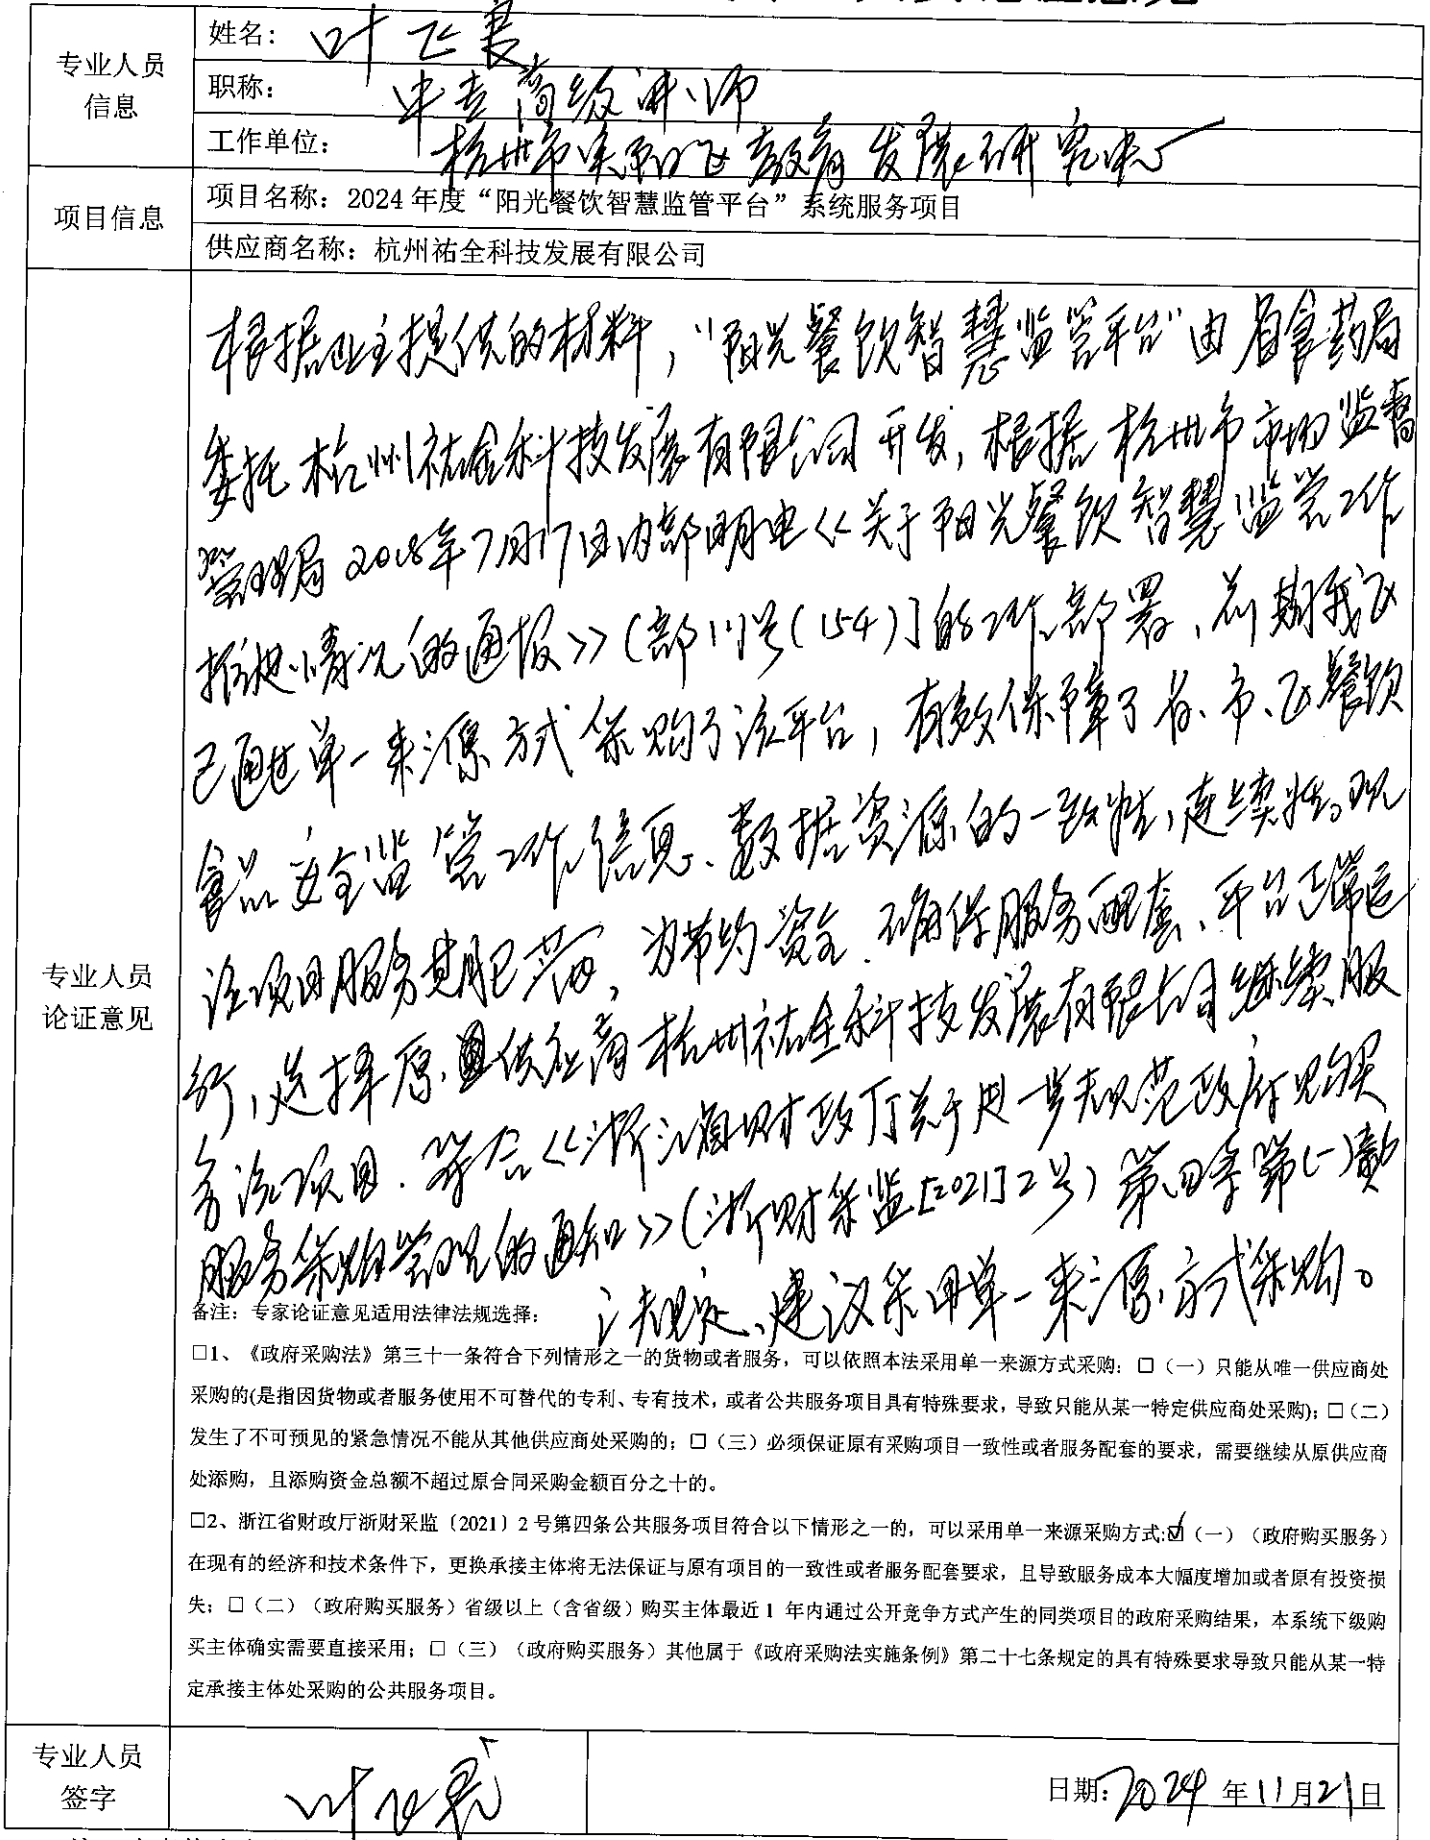 专业人员
信息
姓名：叶飞
职称：高级讲师
工作单位：杭州市教育发展研究中心
项目信息
项目名称：2024年度“阳光餐饮智慧监管平台”系统服务项目
供应商名称：杭州祐全科技发展有限公司
专业人员
论证意见
根据业主提供的材料，“阳光餐饮智慧监管平台”由省食药局
委托杭州祐全科技发展有限公司开发，根据杭州市市场监督
管理局2018年7月17日内部明电《关于阳光餐饮智慧监管工作
推进情况的通报》（部门号(154)]的工作部署，前期我区
已通过单一来源方式采购了该平台，有效保障了省、市、区餐饮
食品安全监管工作信息、数据资源的一致性，连续性。现
该项目服务期已满，为节约资金、确保服务配套、平台正常运
行，选择原供应商杭州祐全科技发展有限公司继续服
务该项目．符合《浙江省财政厅关于进一步规范政府购买
服务采购管理的通知》（浙财采监[2021]2号）第四条第(一)款
之规定、建议采用单一来源方式采购。
备注：专家论证意见适用法律法规选择：
□1、《政府采购法》第三十一条符合下列情形之一的货物或者服务，可以依照本法采用单一来源方式采购：□（一）只能从唯一供应商处
采购的(是指因货物或者服务使用不可替代的专利、专有技术，或者公共服务项目具有特殊要求，导致只能从某一特定供应商处采购)；□（二）
发生了不可预见的紧急情况不能从其他供应商处采购的；□（三）必须保证原有采购项目一致性或者服务配套的要求，需要继续从原供应商
处添购，且添购资金总额不超过原合同采购金额百分之十的。
□2、浙江省财政厅浙财采监〔2021〕2号第四条公共服务项目符合以下情形之一的，可以采用单一来源采购方式:☑（一）（政府购买服务）
在现有的经济和技术条件下，更换承接主体将无法保证与原有项目的一致性或者服务配套要求，且导致服务成本大幅度增加或者原有投资损
失；□（二）（政府购买服务）省级以上（含省级）购买主体最近1 年内通过公开竞争方式产生的同类项目的政府采购结果，本系统下级购
买主体确实需要直接采用；□（三）（政府购买服务）其他属于《政府采购法实施条例》第二十七条规定的具有特殊要求导致只能从某一特
定承接主体处采购的公共服务项目。
专业人员
签字
叶飞
日期：2024年11月21日